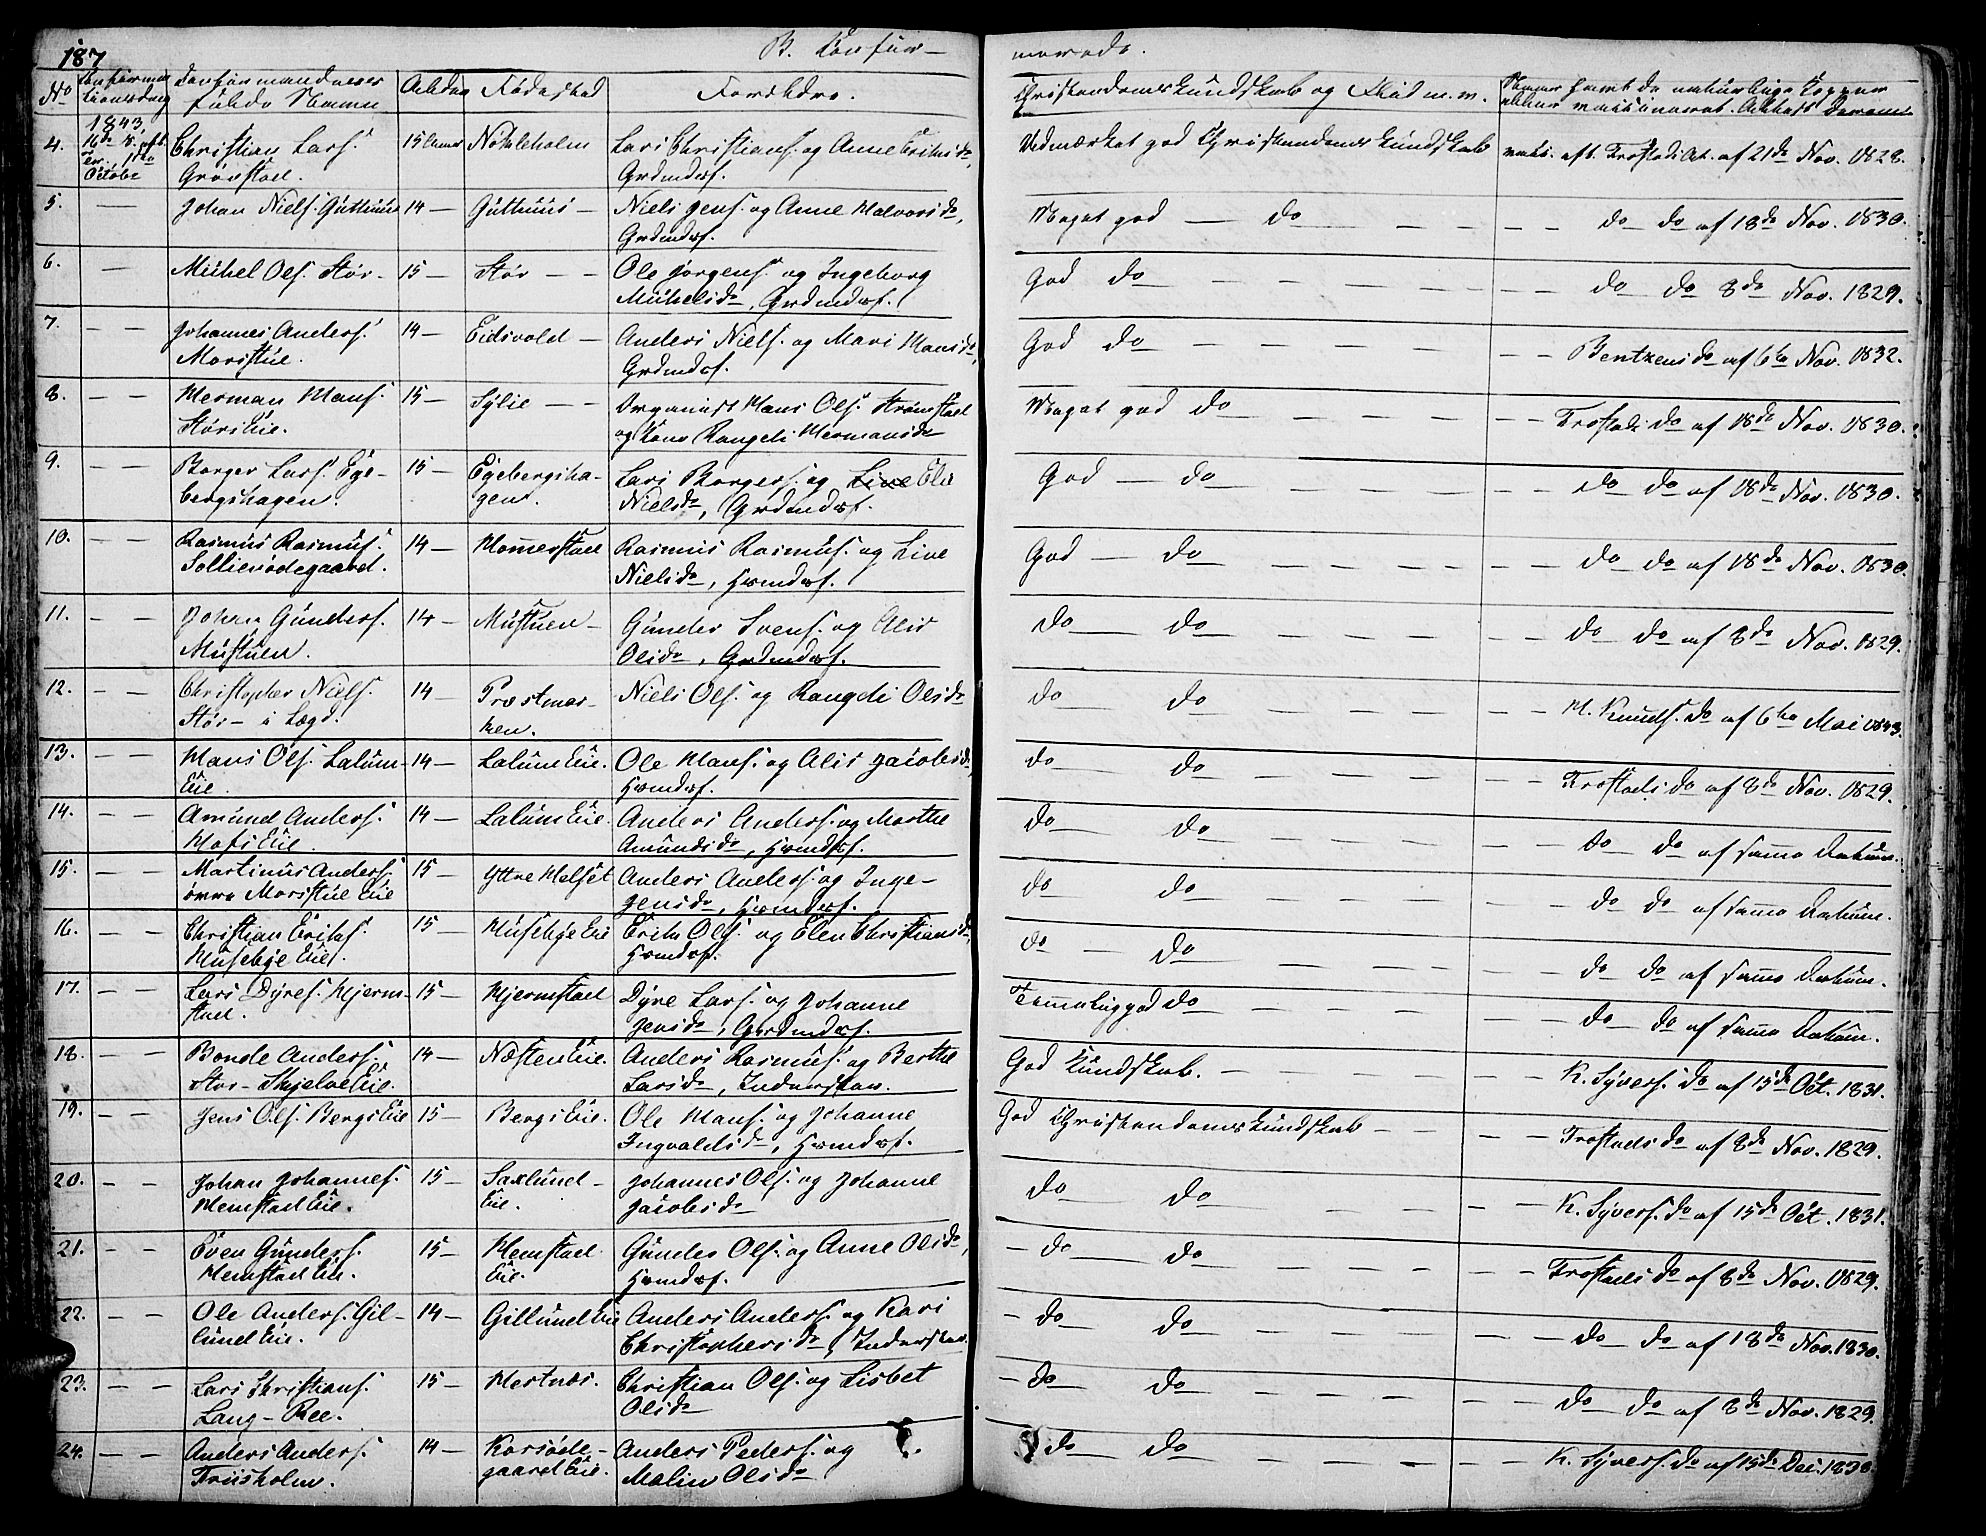 187
B. Confir-
merede.
No
Confirma-
tionsdag
Confirmandernes
fulde Navne
Alder
Fødested
Forældre.
Christendomskundskab og Flid m. m.
1843,
16de S. eft.
Tr., 1ste
Octobr
4. Christian Lars.
Gravstad.
15 Aar
Lars Christians. og Anne Eriksd.,
Grdmdsf.
Udmærket god Christendomskundskab
aft. Frostads Att. af 21de Nov. 1828.
5. — Johan Niels. Guthuus 14 — Guthuus — Niels Jens. og Anne Halvorsd.,
Grdmdsf.
Meget god — do — — — — — do do af 18de Nov. 1830.
6. — Mikkel Ols. Stør - 15 — Stør — — Ole Jørgens. og Ingeborg
Mikkelsd., Grdmdsf.
God do — — — — do do 8de Nov. 1829.
7. — — Johannes Anders.
Morstue.
14 — Eidsvold — Anders Niels. og Mari Hansd.,
Grdmdsf.
God do — — — — — — Bentzens do af 6te Nov. 1832.
8. — — Herman Hans.
Størs Eie.
15 — Sylie — — Organist Hans Ols. Strømstad
og Kone Rangdi Hermansd.
Meget god do — — — — — — Frostads do af 18de Nov. 1830.
9. — — Borger Lars. Ege-
bergshagen.
15 — Egebergsha-
gen.
Lars Borgers. og Live Elie
Nielsd., Grdmdsf.
God — do — — — — — — do do af 18de Nov. 1830.
10. — — Rasmus Rasmus.
Sollienødegaard.
14 — Homerstad Rasmus Rasmus. og Live
Nielsd., Hsmdsf.
God — do — — — — — — do do af 18de Nov. 1830.
11. — — Johan Gunders.
Mustuen.
14 — Mustuen — Gunder Svens. og Alis
Olsd., Grdmdsf.
do do — — — — — — do do af 8de Nov. 1829.
12. — — Christopher Niels.
Stør - i Lægd.
14 — Præstmar-
ken.
Niels Ols. og Rangdi Olsd.
do do — — — — — — H. Knuds. do af 6te Mai 1843.
13. — — Hans Ols. Lalum-
Eie.
14 — Lalum Eie. Ole Hans. og Alis Jacobsd.,
Hsmdsf.
do do — — — — — — Frostads do af 8de Nov. 1829.
14. — — Amund Anders.
Hofs Eie.
14 — Lalum Eie. Anders Anders. og Marthe
Amundsd., Hsmdsf.
do do — — — — — — do do af samme Datum.
15. — — Martinus Anders.
øvre Morstue Eie
15 — Yttre Helset Anders Anders. og Inge-
Jensd., Hsmdsf.
do do — — — — — — do do af samme Datum.
16. — — Christian Eriks.
Husebye Eie.
15 — Husebye Eie Erik Ols. og Elen Christiansd.,
Hsmdsf.
do do — — — — — — do do af samme Datum.
17. — — Lars Dyres. Hjerm-
stad.
15 — Hjermstad Dyre Lars. og Johanne
Jensd., Grdmdsf.
Temmelig god do — — — — — — do do af samme Datum.
18. — — Bonde Anders.
Stor - Skjelve Eie.
14 — Næsten Eie. Anders Rasmus. og Berthe
Larsd., Inderster.
God Kundskab. — — — — — — K. Syvers. do af 15de Oct. 1831.
19. — — Jens Ols. Bergs Eie 15 — Bergs Eie. Ole Hans. og Johanne
Ingvaldsd., Hsmdsf.
God Christendomskundskab — — — — Frostads do af 8de Nov. 1829.
20. — — Johan Johannes.
Hemstad Eie.
15 — Saxlund-
Eie.
Johannes Ols. og Johanne
Jacobsd.
do do — — — — — — K. Syvers. do af 15de Oct. 1831.
21. — — Even Gunders.
Hemstad Eie.
15 — Hemstad
Eie.
Gunder Ols. og Anne Olsd.,
Hsmdsf.
— do do — — — — — — Frostads do af 8de Nov. 1829.
22. — — Ole Anders. Gil-
lund Eie.
14 — Gillund Eie Anders Anders. og Kari
Christophersd., Inderster.
— do do — — — — — — do do af 18de Nov. 1830.
23. — — Lars Christians.
Lang-Ree.
15 — Hestnæs. Christian Ols. og Lisbet
Olsd.
— do do — — — — — — do do af 8de Nov. 1829.
24. — — Anders Anders.
Friisholm.
14 — Korsøde-
gaard Eie.
Anders Peders. og
Malin Olsd.
do do — — — — — — K. Syvers. do af 15de Dec. 1830.